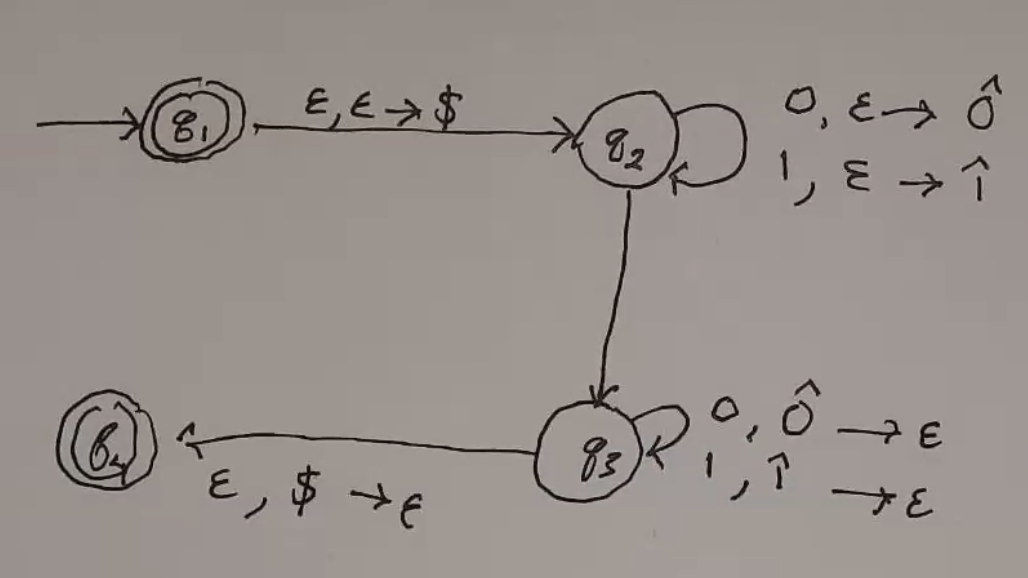 q₁
ε, ε → $
q₂
0, ε → 0̂
1, ε → 1̂
q₃
0, 0̂ → ε
1, 1̂ → ε
ε, $ → ε
q₄